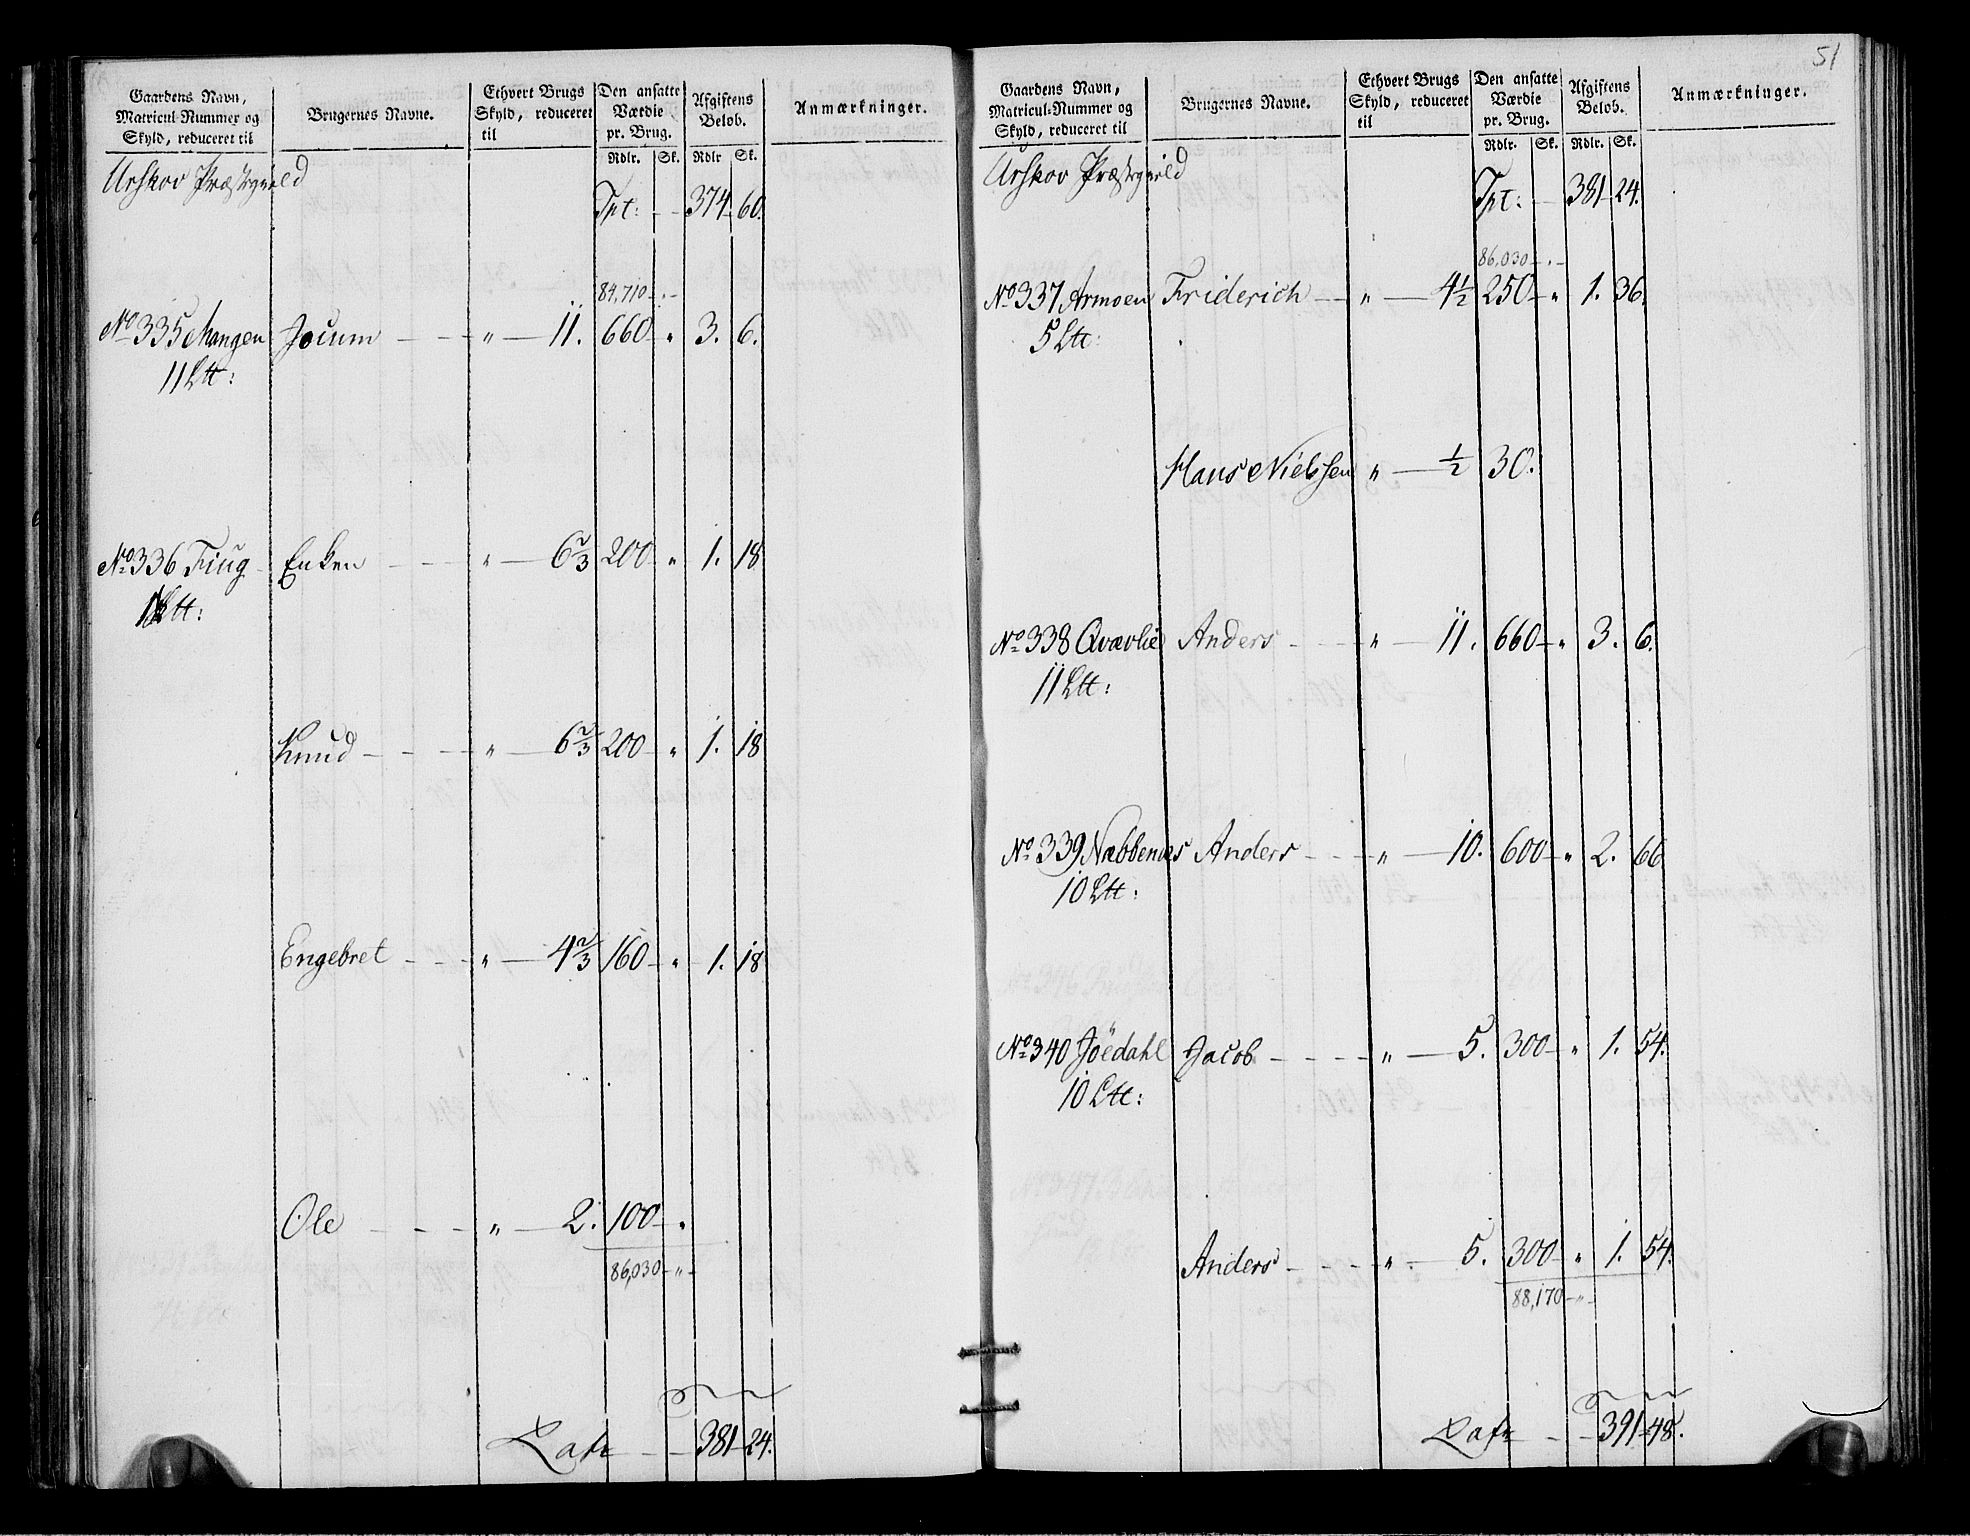 Gaardens Navn, Matricul-Nummer og Skyld, reduceret til | Brugernes Navne. | Ethvert Brugs Skyld, reduceret til | Den ansatte Værdie pr. Brug. | Afgiftens Beløb. | Anmærkninger.
Rdlr. | Sk. | Rdlr | Sk.
Urskov Præstegield
Tpt: - - 374 60.
84,710 - . -
No 335 Mangen Jocum - - - " - 11. 660 " 3. 6.
11 Ltt:
No 336 Fiug Enken - - - " - 6 2/3 200 - " 1. 18
Ltt:
Knud - - - - " - 6 2/3 200 - " 1. 18
Engebret - - - " - 4 2/3 160 - " 1. 18
Ole - - - " - 2. 100 - "
86,030 - " -
Lats - - 381 24.
51
Gaardens Navn, Matricul-Nummer og Skyld, reduceret til | Brugernes Navne. | Ethvert Brugs Skyld, reduceret til | Den ansatte Værdie pr. Brug. | Afgiftens Beløb. | Anmærkninger.
Rdlr. | Sk. | Rdlr. | Sk.
Urskov Præstegield
Tpt: - - 381 24.
86,030 - . -
No 337 Armoen Friderich - - " - 4 1/2 250 - " 1. 36.
5 Ltt:
Hans Nielssen " - 1/2 30.
No 338 Qvævlie Anders - - - " - 11. 660 - " 3. 6.
11 Ltt:
No 339 Næbbenæs Anders - - - " - 10. 600 - " 2. 66
10 Ltt:
No 340 Jöedahl Jacob - - - - " - 5. 300 - " 1. 54.
10 Ltt:
Anders - - - - " - 5. 300 " 1. 54.
88,170 - " -
Lats - - 391 48.